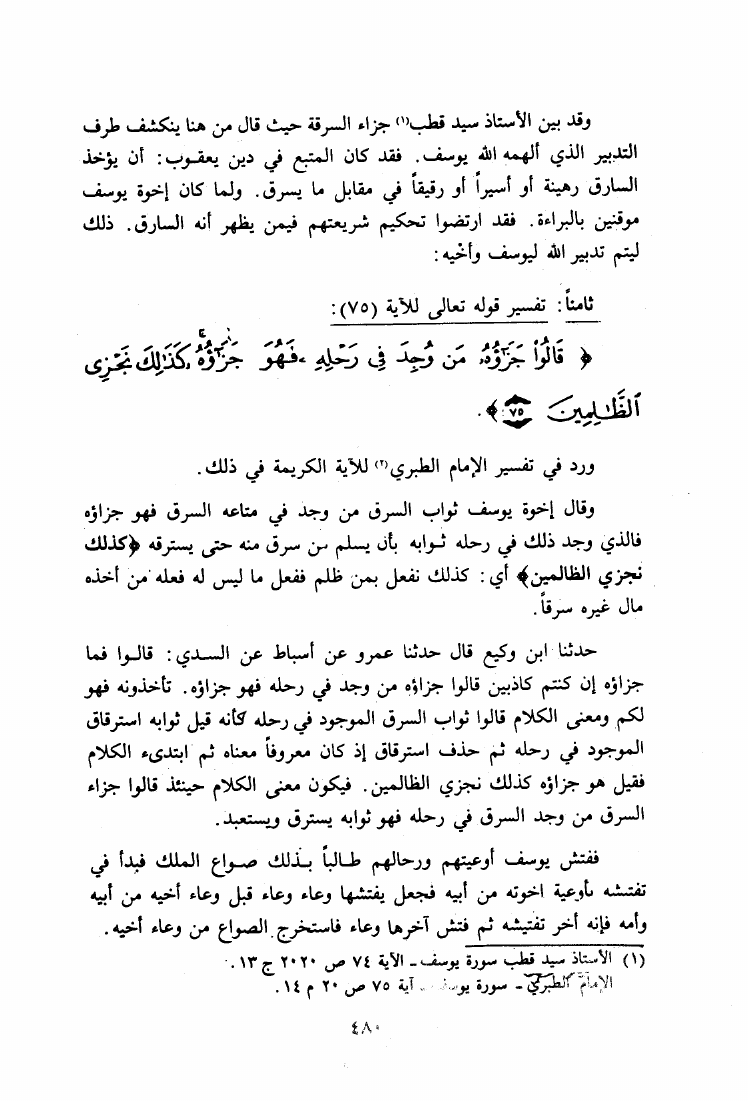 وقد بين الأستاذ سيد قطب(١) جزاء السرقة حيث قال من هنا ينكشف طرف
التدبير الذي ألهمه الله يوسف. فقد كان المتبع في دين يعقوب: أن يؤخذ
السارق رهينة أو أسيراً أو رقيقاً في مقابل ما يسرق. ولما كان إخوة يوسف
موقنين بالبراءة. فقد ارتضوا تحكيم شريعتهم فيمن يظهر أنه السارق. ذلك
ليتم تدبير الله ليوسف وأخيه:
ثامناً: تفسير قوله تعالى للآية (٧٥):
﴿ قَالُوا۟ جَزَٰٓؤُهُۥ مَن وُجِدَ فِى رَحْلِهِۦ فَهُوَ جَزَٰٓؤُهُۥ ۚ كَذَٰلِكَ نَجْزِى
ٱلظَّٰلِمِينَ ٧٥ ﴾.
ورد في تفسير الإمام الطبري(٢) للآية الكريمة في ذلك.
وقال إخوة يوسف ثواب السرق من وجد في متاعه السرق فهو جزاؤه
فالذي وجد ذلك في رحله ثوابه بأن يسلم من سرق منه حتى يسترقه ﴿كذلك
نجزي الظالمين﴾ أي: كذلك نفعل بمن ظلم ففعل ما ليس له فعله من أخذه
مال غيره سرقاً.
حدثنا ابن وكيع قال حدثنا عمرو عن أسباط عن السدي: قالوا فما
جزاؤه إن كنتم كاذبين قالوا جزاؤه من وجد في رحله فهو جزاؤه. تأخذونه فهو
لكم ومعنى الكلام قالوا ثواب السرق الموجود في رحله كأنه قيل ثوابه استرقاق
الموجود في رحله ثم حذف استرقاق إذ كان معروفاً معناه ثم ابتدىء الكلام
فقيل هو جزاؤه كذلك نجزي الظالمين. فيكون معنى الكلام حينئذ قالوا جزاء
السرق من وجد السرق في رحله فهو ثوابه يسترق ويستعبد.
ففتش يوسف أوعيتهم ورحالهم طالباً بذلك صواع الملك فبدأ في
تفتشه بأوعية اخوته من أبيه فجعل يفتشها وعاء وعاء قبل وعاء أخيه من أبيه
وأمه فإنه أخر تفتيشه ثم فتش آخرها وعاء فاستخرج الصواع من وعاء أخيه.
(١) الأستاذ سيد قطب سورة يوسف ـ الآية ٧٤ ص ٢٠٢٠ ج ١٣.
الإمام الطبري ـ سورة يوسف ـ آية ٧٥ ص ٢٠ م ١٤.
٤٨٠